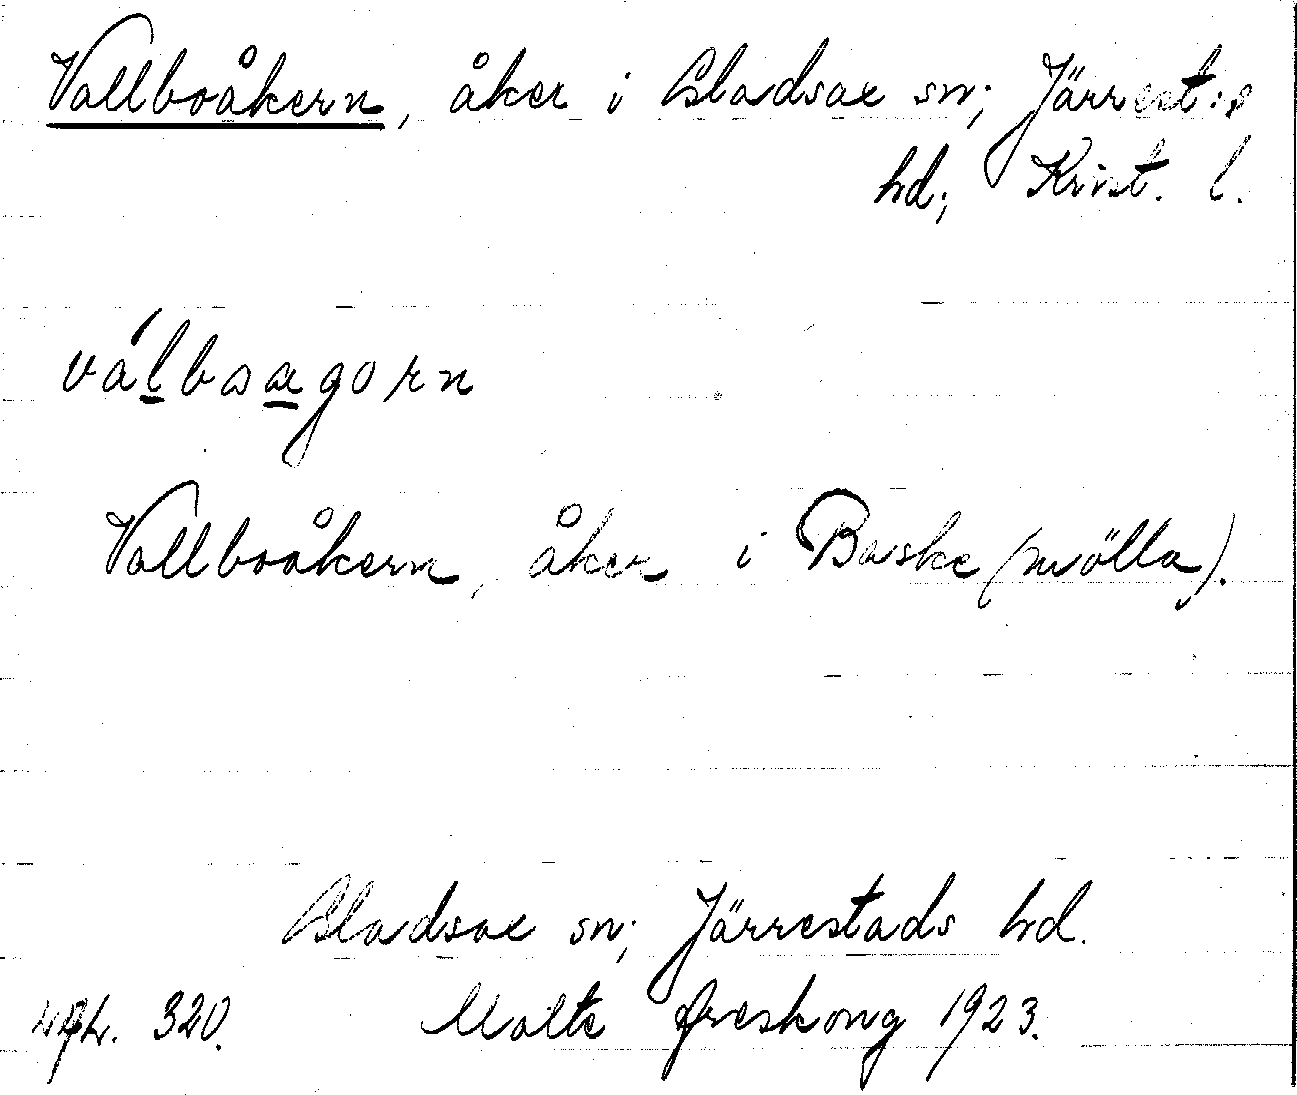 Vallboåkern, åker i Gladsax sn; Järrest:s
hd; Krist. l.
válbsagorn
Vallboåkern, åker i Baske (mölla).
Gladsax sn; Järrestads hd.
320. Malte Areskoug 1923.